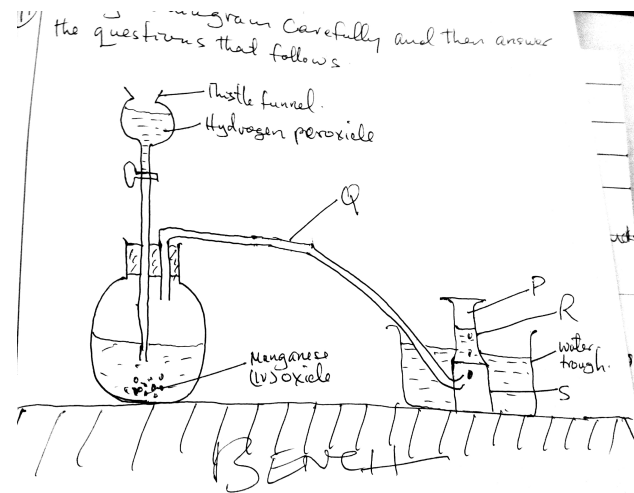 Carefully and then answer
the questions that follows.
Thistle funnel.
Hydrogen peroxide
Q
P
R
water
trough.
Manganese
(IV) oxide
S
BENCH